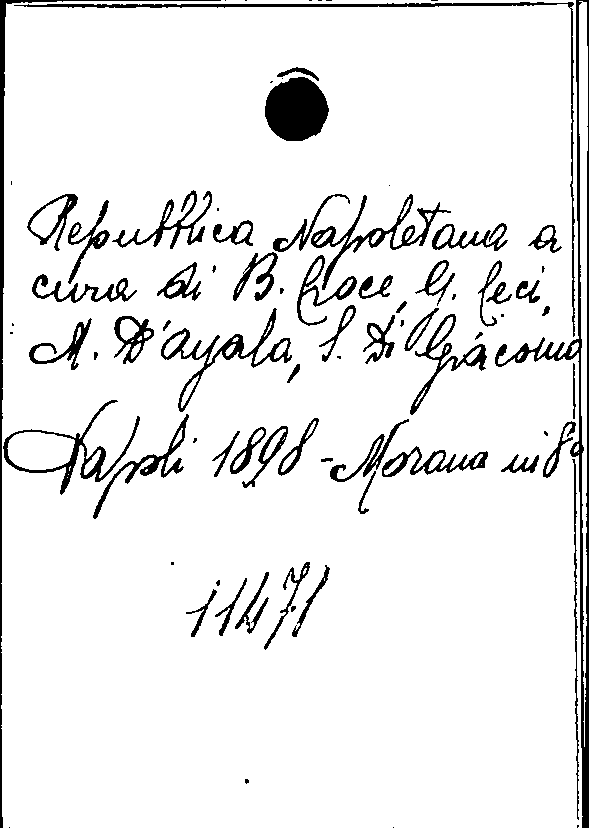 Repubblica Napoletana a
cura di B. Croce, G. Ceci,
M. D'Ayala, S. Di Giacomo
Napoli 1898 - Morana in 8º
11471